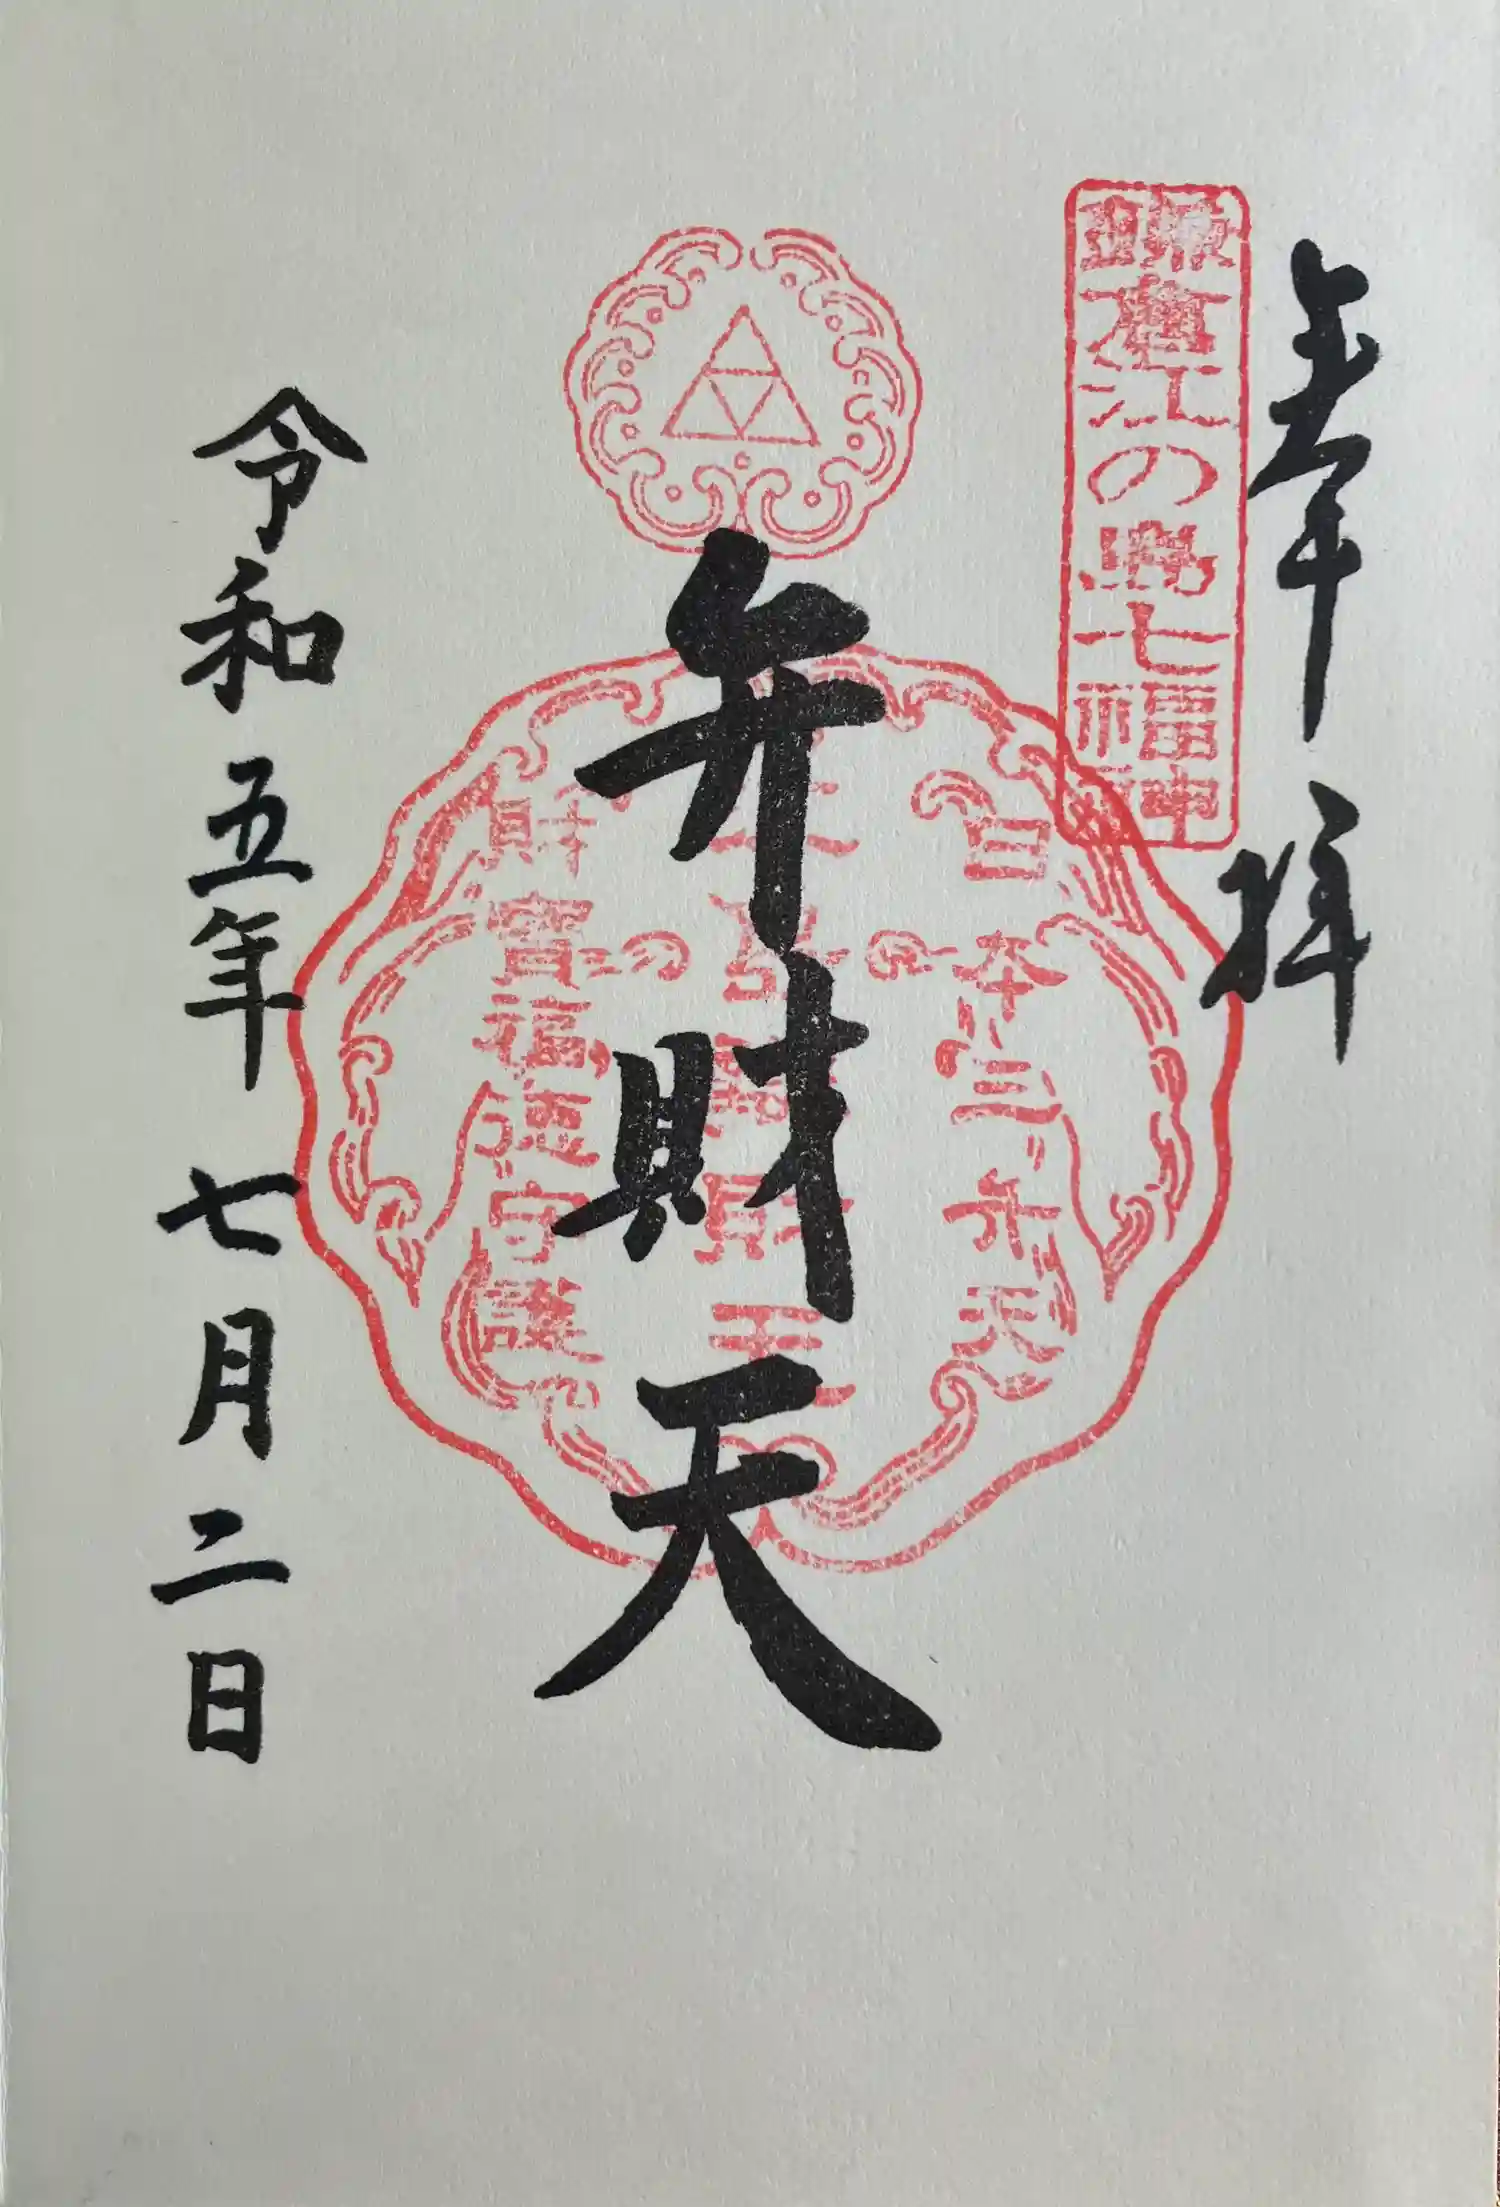 奉拝
鎌倉江の島七福神
日本三弁天
弁財天
財寶福徳守護
令和五年七月二日